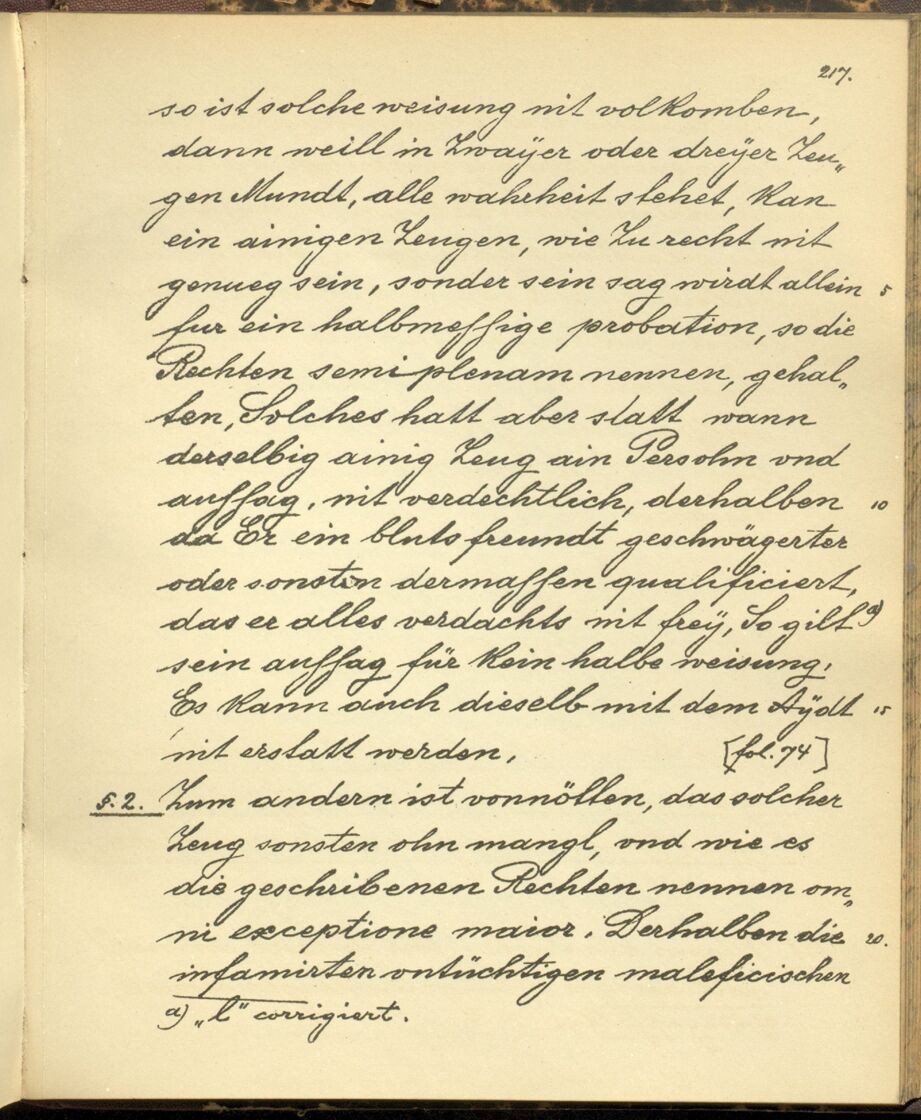 217.
so ist solche weisung nit volkomben,
dann weill in Zwaÿer oder dreÿer Zeu„
gen Mundt, alle wahrheit stehet, kan
ein ainigen Zeugen, wie Zu recht nit
genueg sein, sonder sein sag wirdt allein 5
fur ein halbmessige probation, so die
Rechten semiplenam nennen, gehal„
ten, Solches hatt aber statt wann
derselbig ainig Zeug ain Persohn vnd
aussag, nit verdechtlich, derhalben 10
da Er ein blutsfreundt geschwägerter
oder sonsten dermassen qualificiert,
das er alles verdachts nit freÿ, So gilt a)
sein aussag für kein halbe weisung.
Es kann auch dieselb mit dem Aÿdt 15
nit erstatt werden. [fol. 74]
§. 2. Zum andern ist vonnötten, das solcher
Zeug sonsten ohn mangl, vnd wie es
die geschribenen Rechten nennen om„
ni exceptione maior. Derhalben die 20.
infamirten vntüchtigen maleficischen
a) „l" corrigiert.